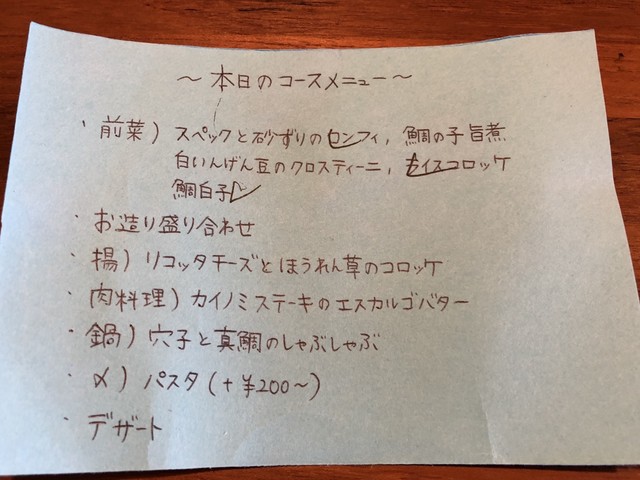 ～本日のコースメニュー～
・前菜) スペックと砂ずりのコンフィ, 鯛の子旨煮
白いんげん豆のクロスティーニ, ライスコロッケ
鯛白子
・お造り盛り合わせ
・揚) リコッタチーズとほうれん草のコロッケ
・肉料理) カイノミステーキのエスカルゴバター
・鍋) 穴子と真鯛のしゃぶしゃぶ
・〆) パスタ(+¥200～)
・デザート